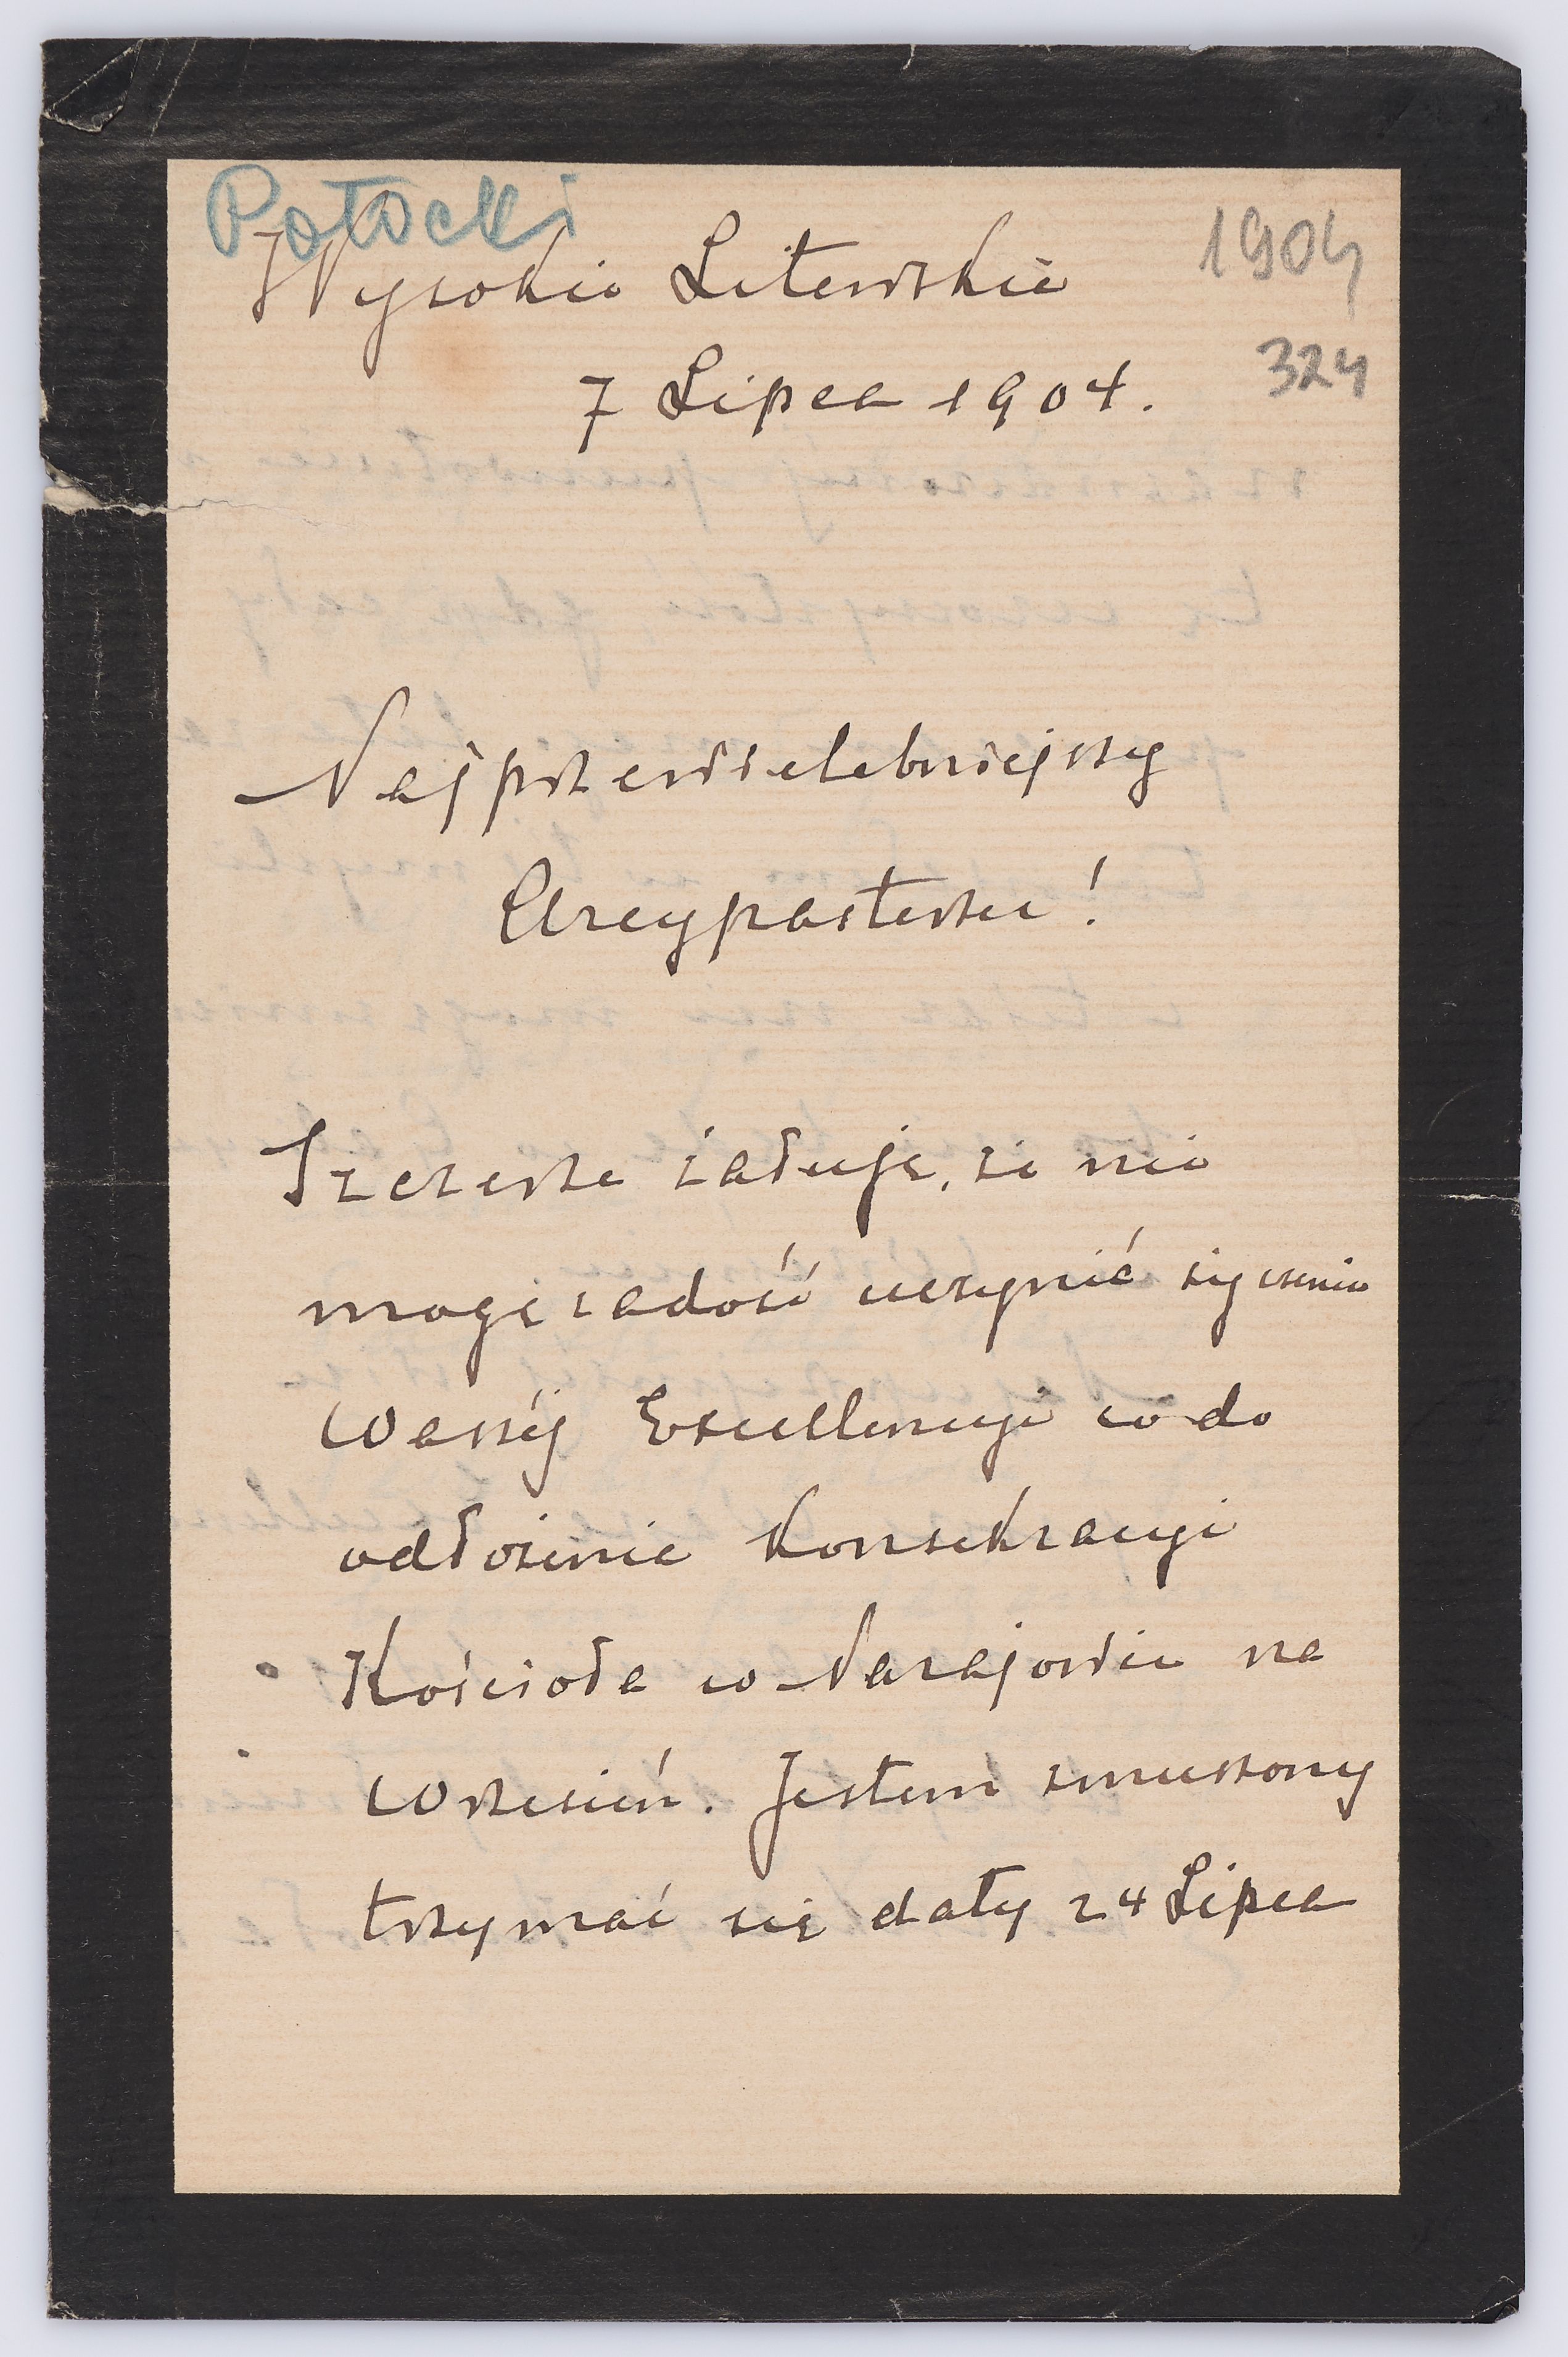 Potocki
1904
Wysokie Litewskie
324
7 Lipca 1904.
Najprzewielebniejszy
Arcypasterzu!
Szczerze żałuję, że nie
mogę zadość uczynić życzeniu
Waszéj Excellencyi co do
odłożenie Konsekracyi
Kościoła w Narajowie na
Wrzesień. Jestem zmuszony
trzymać się daty 24 Lipca